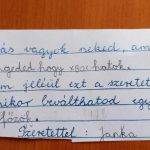 ás vagyok neked, am
ngeded hogy veled hatok.
m jeléül ezt a szeretet
mikor beválthatod egy
főzok.
Szeretettel: Janka